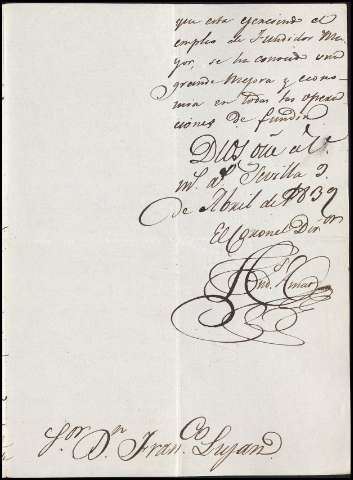 que esta ejerciendo el
empleo de Fundidor Ma
yor, se ha conocido una
grande mejora y econo
mia en todas las opera
ciones de fundir
Dios gue. á V.
ms. as. Sevilla 9.
de Abril de 1839
El Coronel Dir.or
Sor. Dn. Franco. Lujan.